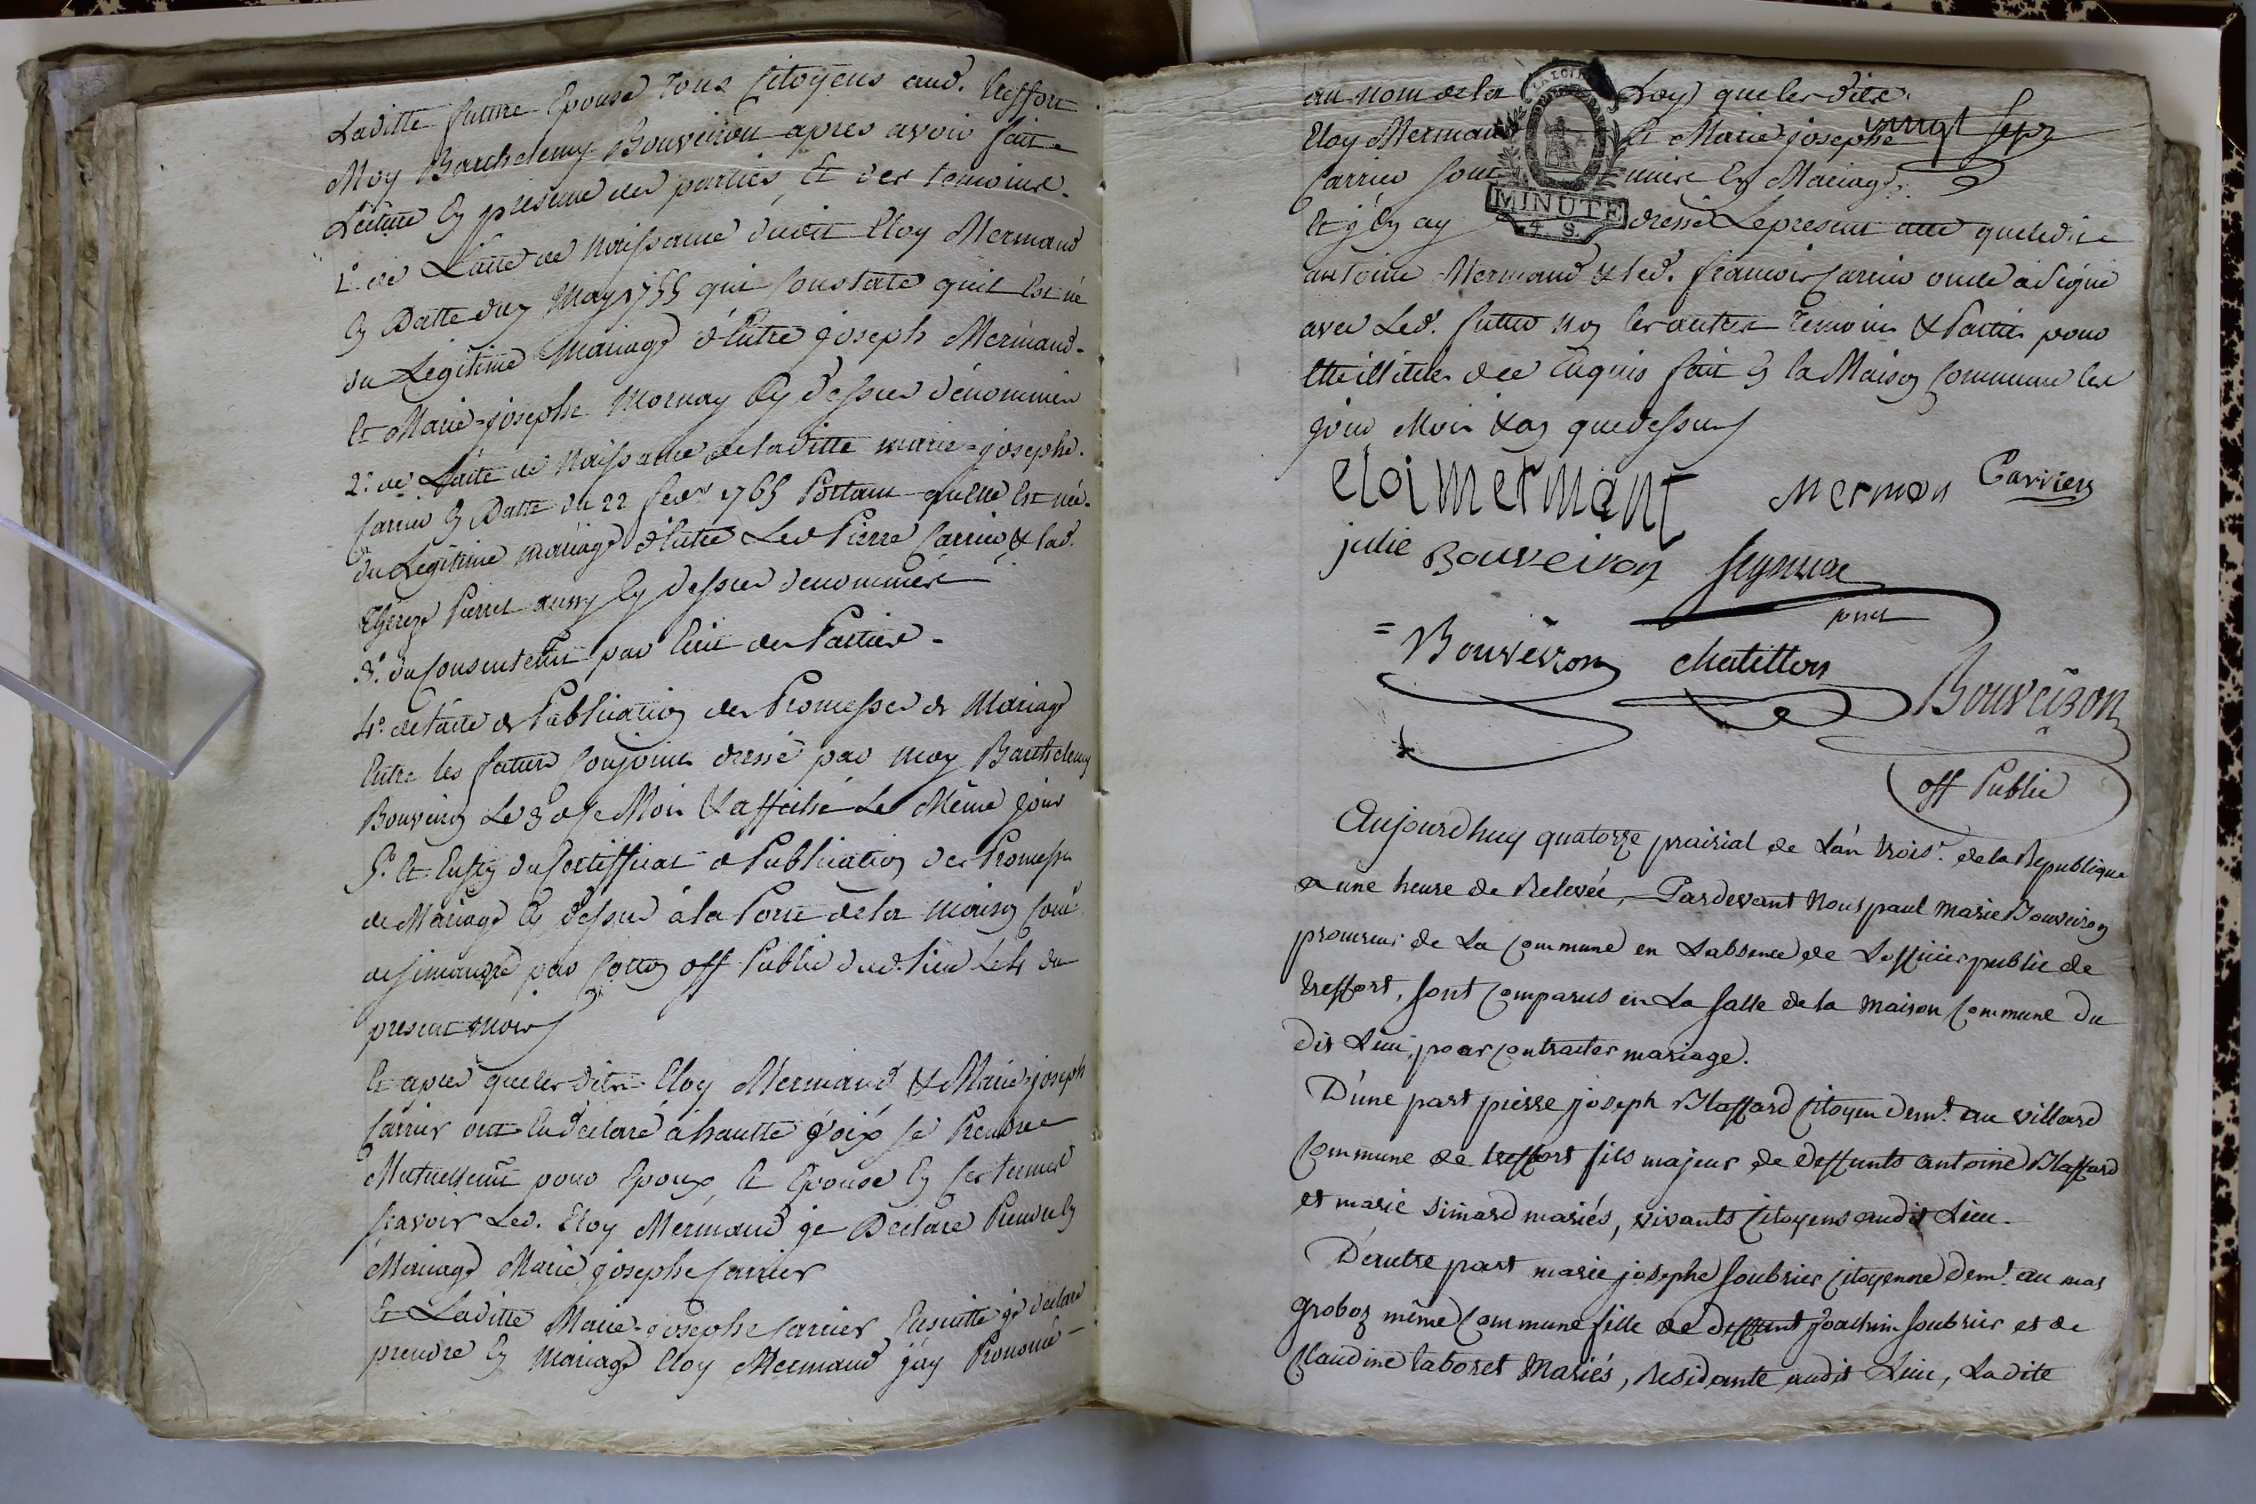 Laditte future Epouse tous Citoyens aud. treffort
Moy Barthelemy Bouveiron apres avoir fait
Lecture En presence des parties Et des temoins
1.º de L'acte de Naissance dudit Eloy Mermand
En Datte du 7 May 1755 qui Constate quil Est né
du Legitime Mariage d'Entre joseph Mermand
Et Marie-josephe Mornay Cy dessus dénommés
2.º de L'acte de Naissance de laditte marie-josephe
Carrier En Datte du 22 fevr 1765 Portant quelle Est née
du Legitime mariage d'Entre Led Pierre Carrier & lad.
Therese Perret aussy Cy dessus denommés
3.º du Consentemt par Ecrit des Parties
4.º de l'acte de Publication des Promesses de Mariage
Entre les futurs Conjoints dressé par moy Barthelemy
Bouveiron Le 3 de ce Mois & affiché Le Même jour
5.º Et Enfin du Certifficat de Publication des Promesses
de Mariage Cy dessus à la Porte de la maison Comé
de simandre par Cotton off Public dud. lieu Le 4 du
present mois
Et apres que lesdits Eloy Mermand & Marie-joseph
Carrier ont Eu déclaré à hautte voix se Prendre
Mutuellemt pour Epoux et Epouse En ses termes
scavoir Led. Eloy Mermand je Declare Prendre En
Mariage Marie josephe Carrier
Et Laditte Marie-josephe Carrier Ensuitte je declare
prendre En Mariage Eloy Mermand j'ay Prononcé
au nom de la Loy que lesdits
vingt sept
Eloy Mermand Et Marie josephe
Carrier sont unis En Mariage
LA LOI
MINUTE
4. S.
Et j'En ay dressé Le present acte que ledit
antoine Mermand & led. francois Carrier oncle a signé
avec Led. futur non les autres temoins & Parties pour
Etre illiteres de ce Enquis fait En la Maison Commune les
jour Mois & an que dessus
eloi mermant
Mermon Carrier
julie Bouveiron
Bouveiron chatillon
Bouveiron
off Public
Aujourdhuy quatorze prairial de L'an trois.e de la Republique
a une heure de Relevée, Pardevant Nous paul Marie Bouveiron
procureur de La Commune en Labsence de Lofficier public de
treffort, sont Comparus en La Salle de la maison Commune du
dit Lieu, pour Contracter mariage.
D'une part pierre joseph Blaffard Citoyen demt. au villard
Commune de treffort fils majeur de deffunts antoine Blaffard
et marie simard mariés, vivants Citoyens audit Lieu.
D'autre part marie josephe Soubrier Citoyenne demt. au mas
groboz même Commune fille de deffunt Joachim Soubrier et de
Claudine taboret mariés, Residante audit Lieu, Ladite